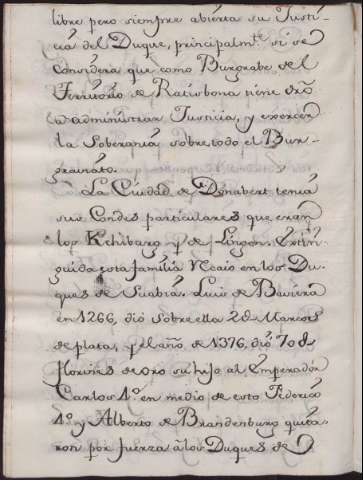 libre pero siempre abierta su Justi-
cia del Duque, principalmte si se
considera que como Burgrabe del
Territorio de Ratisbona tiene dro
a administrar Justicia, y exercer
la Soberania sobre todo el Bur-
graviato.
La Ciudad de Donabert tenia
sus Condes particulares que eran
los Kchibarg y de Lingon. Extin-
guida esta familia recaio en los Du-
ques de Suabia. Luis de Baviera
en 1266, dió sobre ella 2@ Marcos
de plata, y el año de 1376, dió 70@
florines de oro su hijo al Emperador
Carlos 4º en medio de esto Federico
4º y Alberto de Brandenburg quita-
ron por fuerza à los Duques de